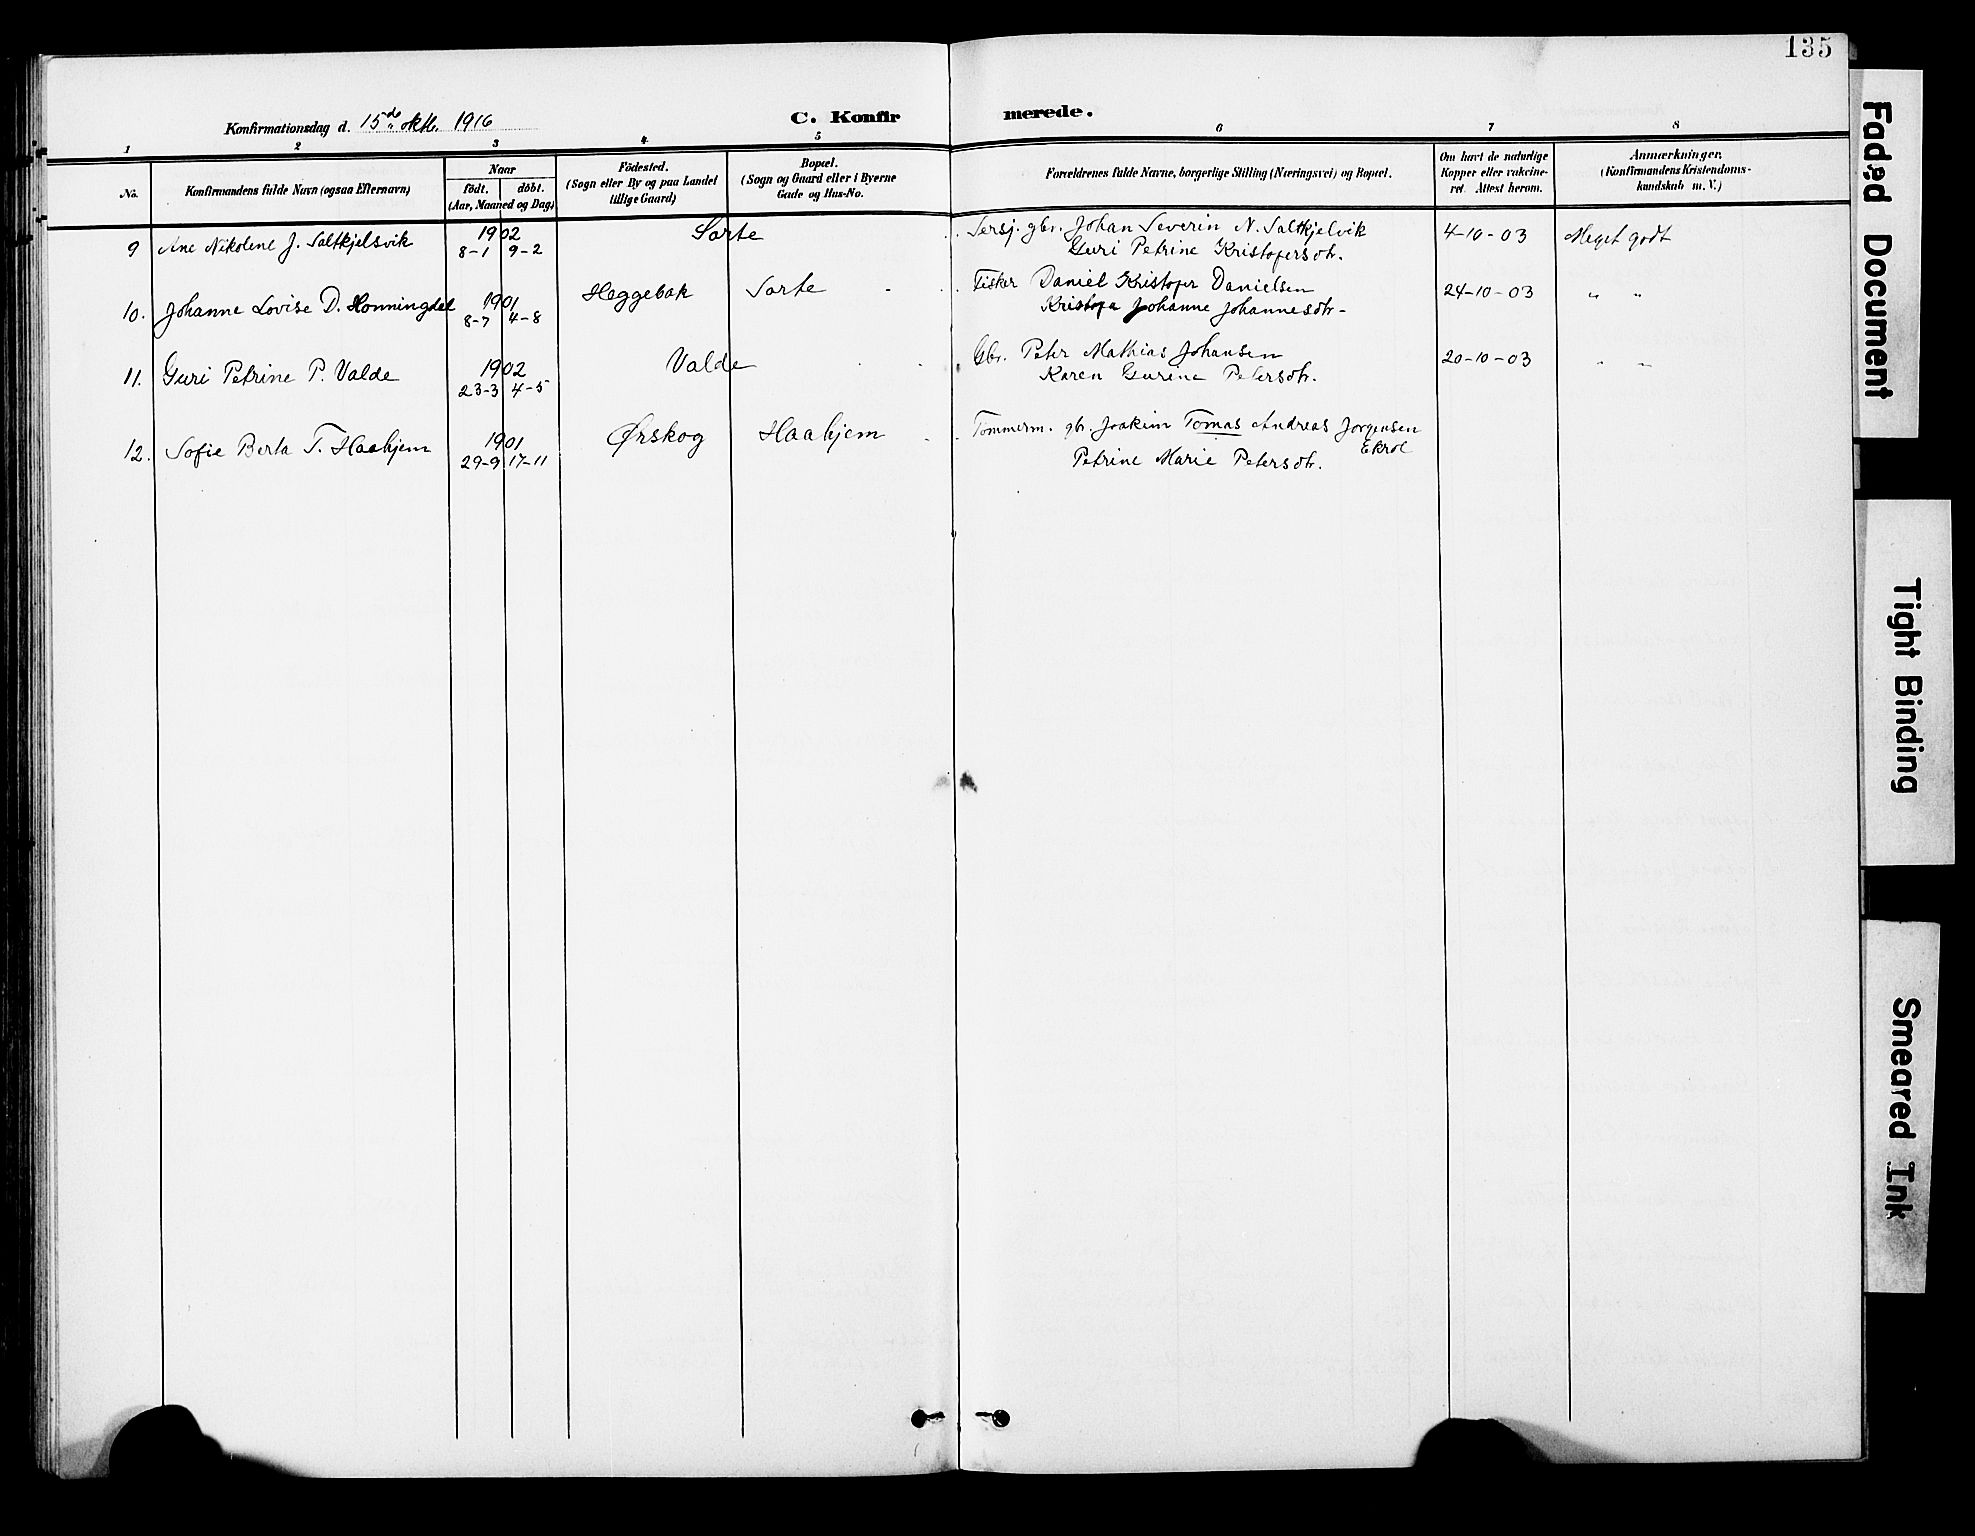 135
Konfirmationsdag d. 15de oktb. 1916
C. Konfirmerede.
1 2 3 4 5 6 7 8
No.
Konfirmandens fulde Navn (ogsaa Efternavn)
Naar
födt. döbt.
(Aar, Maaned og Dag)
Födested.
(Sogn eller By og paa Landet
tillige Gaard)
Bopæl.
(Sogn og Gaard eller i Byerne
Gade og Hus-No.
Forældrenes fulde Navne, borgerlige Stilling (Næringsvei) og Bopæl.
Om havt de naturlige
Kopper eller vakcine-
ret. Attest herom.
Anmærkninger.
(Konfirmandens Kristendoms-
kundskab m. V.)
9 Ane Nikolene J. Saltkjelsvik 1902 Sorte Sersj. gbr. Johan Severin N. Saltkjelvik 4-10-03 Meget godt
8-1 9-2 Guri Petrine Kristofersdtr.
10. Johanne Lovise D. Honningdal 1901 Heggebak Sorte Fisker Daniel Kristofer Danielsen 24-10-03 " "
8-7 4-8 Kristofa Johanne Johannesdtr-
11. Guri Petrine P. Valde 1902 Valde Gbr. Peter Mathias Johansen 20-10-03 " "
23-3 4-5 Karen Gurine Petersdtr.
12. Sofie Berta T. Haahjem 1901 Ørskog Haahjem Tømmerm. gbr. Joakim Tomas Andreas Jørgensen
29-9 17-11 Ekrol
Petrine Marie Petersdtr.
Faded Document
Tight Binding
Smeared Ink